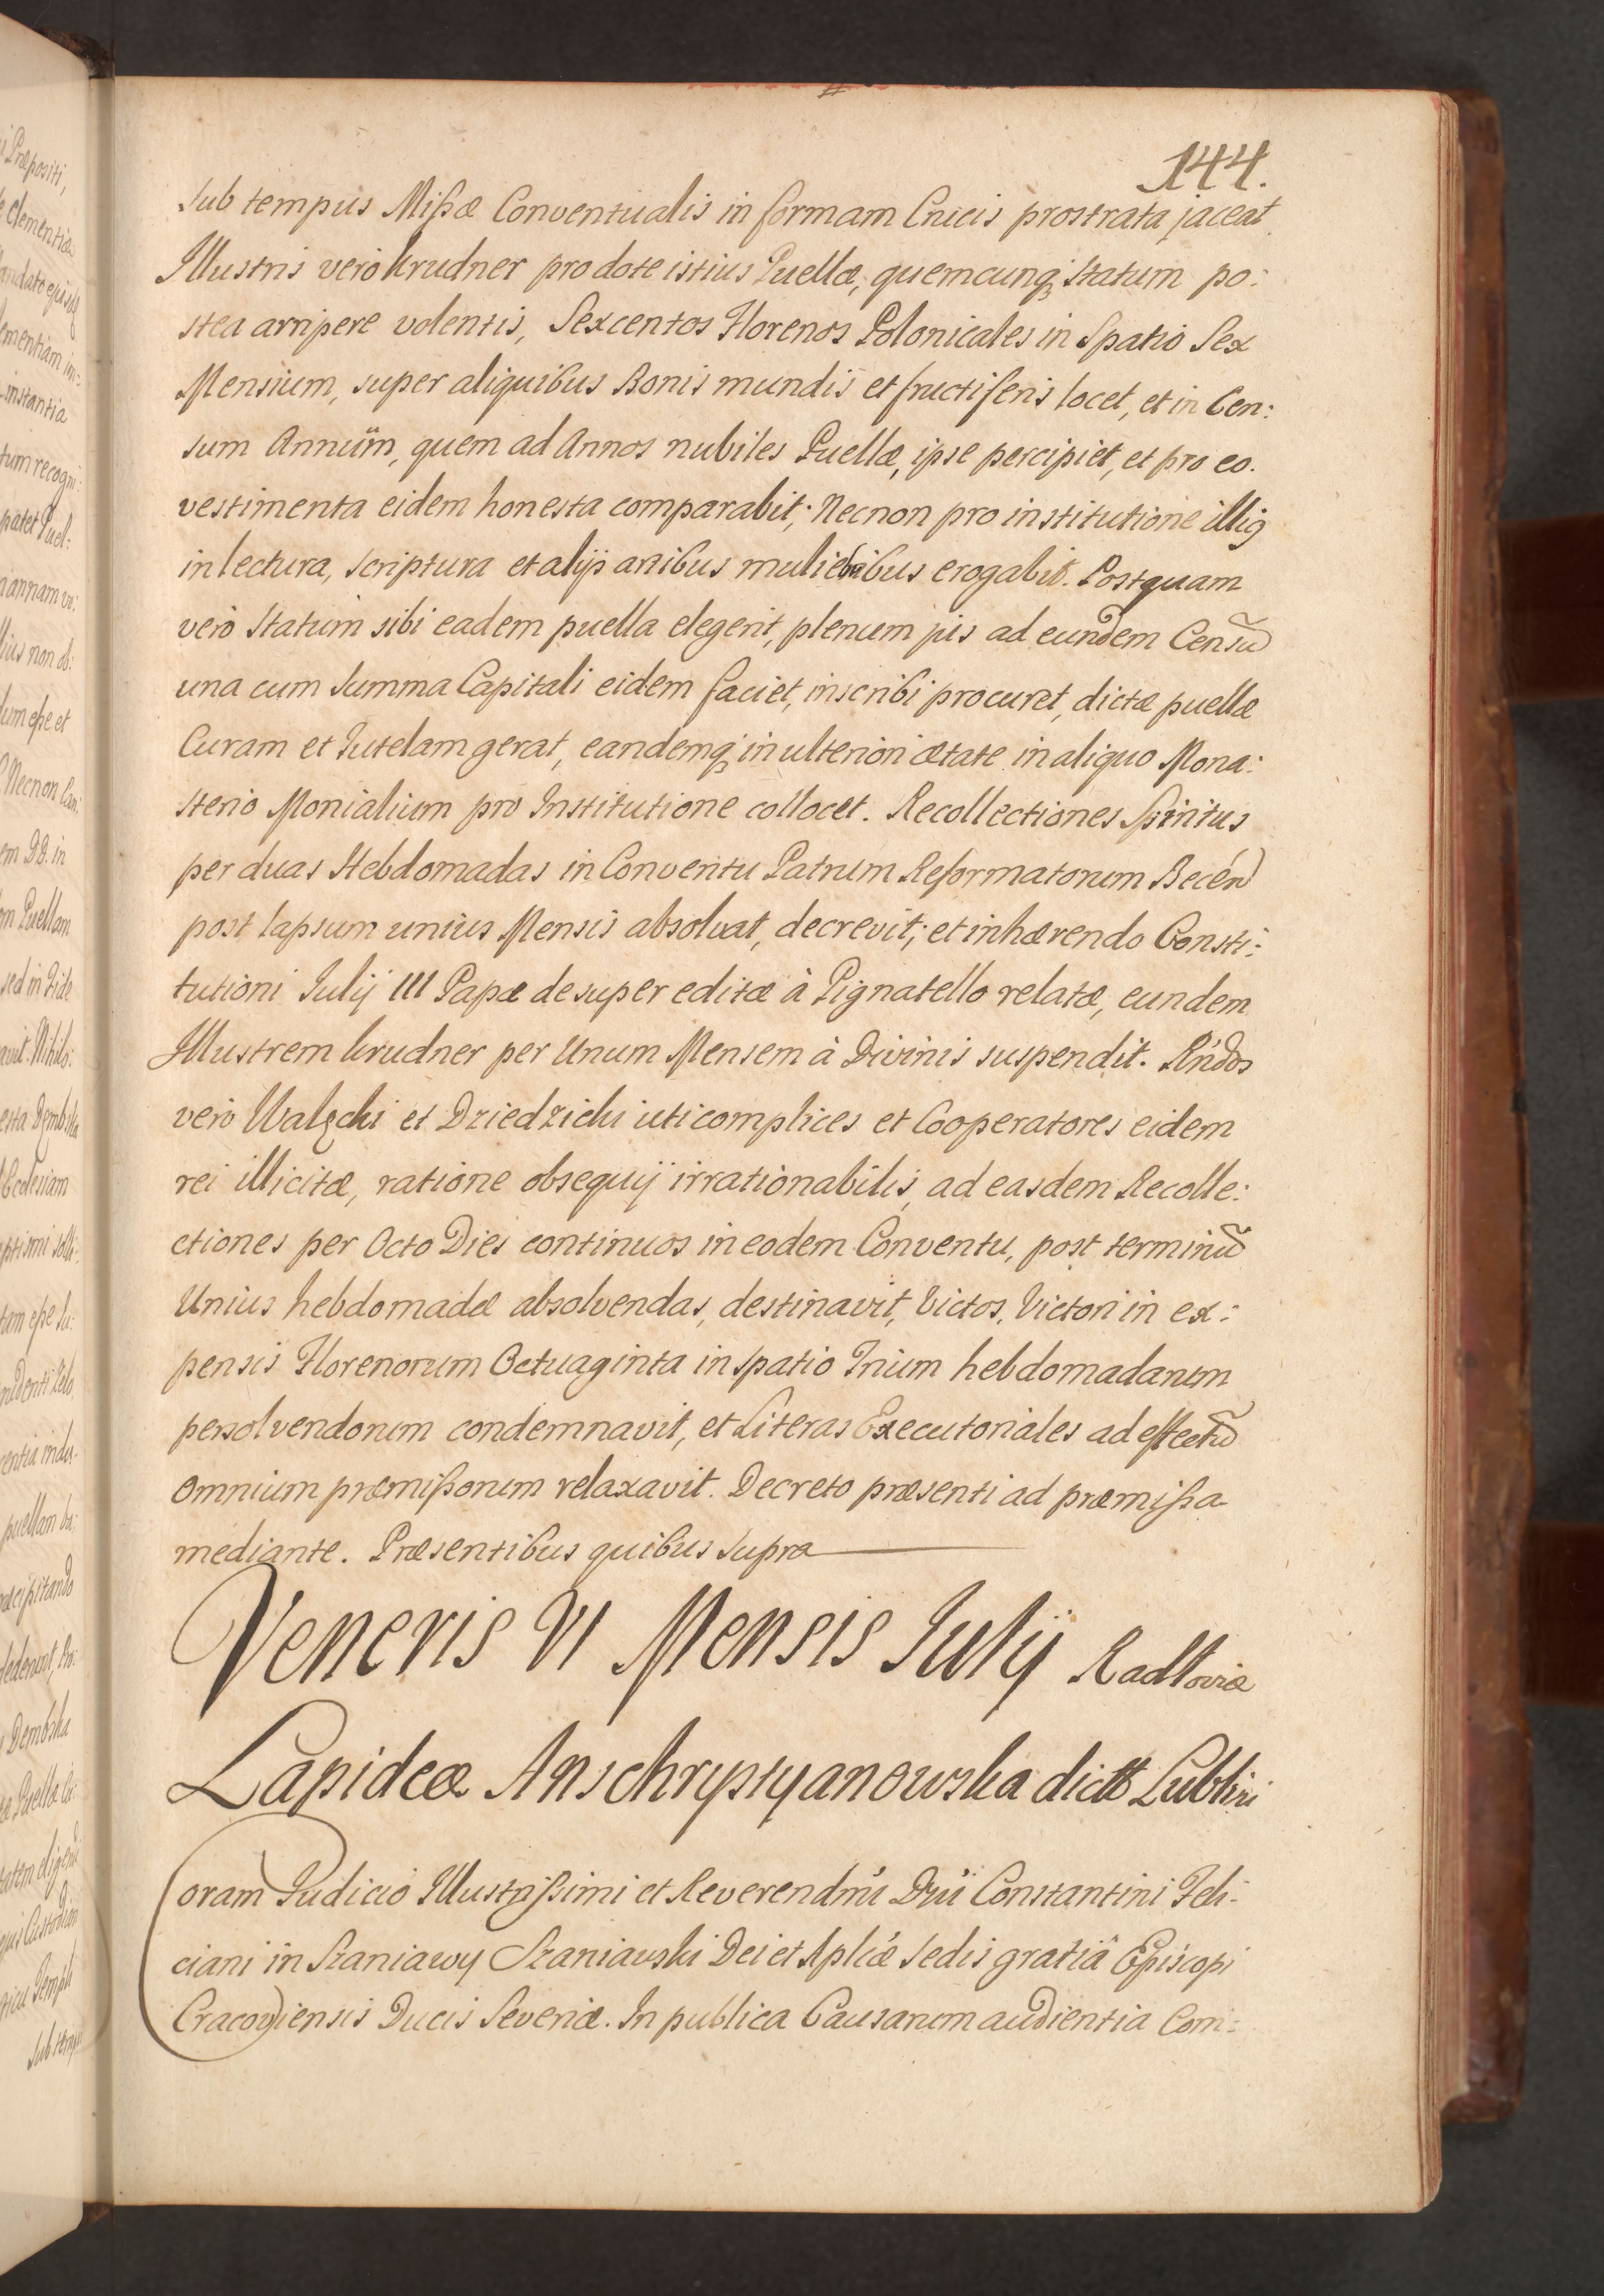 144.
sub tempus Mißæ Conventualis in formam Crucis prostrata jaceat.
Illustris verò Krudner pro dote istius Puellæ, quemcunq; statum po:
stea arripere volentis, Sexcentos Florenos Polonicales in Spatio Sex
Mensium, super aliquibus Bonis mundis et fructiferis locet, et in Cen:
sum Annuum, quem ad Annos nubiles Puellæ, ipse percipiet, et pro eo.
vestimenta eidem honesta comparabit; Necnon pro institutione illig
in lectura, scriptura et alijs artibus muliebribus erogabit. Postquam
verò Statum sibi eadem puella elegerit, plenum jus ad eundem Censũ
una cum Summa Capitali eidem faciet, inscribi procuret, dictæ puellæ
Curam et Tutelam gerat, eandemq; in ulteriori ætate in aliquo Mona:
sterio Monialium pro Institutione collocet. Recollectiones Spiritus
per duas Hebdomadas in Conventu Patrum Reformatorum Becén
post lapsum unius Mensis absolvat, decrevit; et inhærendo Consti:
tutioni Julij III Papæ desuper editæ à Pignatello relatæ, eundem
Illustrem Krudner per Unum Mensem à Divinis suspendit. Rńdos
verò Walęcki et Dziedzicki uti complices et Cooperatores eidem
rei illicitæ, ratione obsequij irrationabilis, ad easdem Recolle:
ctiones per Octo Dies continuos in eodem Conventu, post terminũ
Unius hebdomadæ absolvendas, destinavit, Victos, Victori in ex:
pensis Florenorum Octuaginta in spatio Trium hebdomadarum
persolvendorum condemnavit, et Literas Executoriales ad effectũ
omnium præmißorum relaxavit. Decreto præsenti ad præmißa
mediante. Præsentibus quibus supra
Veneris VI Mensis Julij Radłoviæ
Lapideæ Anschrystyanowska dictæ Lublini
Coram Judicio Illustrißimi et Reverendmi Dńi Constantini Feli:
ciani in Szaniawy Szaniawski Dei et Aplicæ Sedis gratiâ Episcopi
Cracoviensis Ducis Severiæ. In publica Causarum audientia Com: